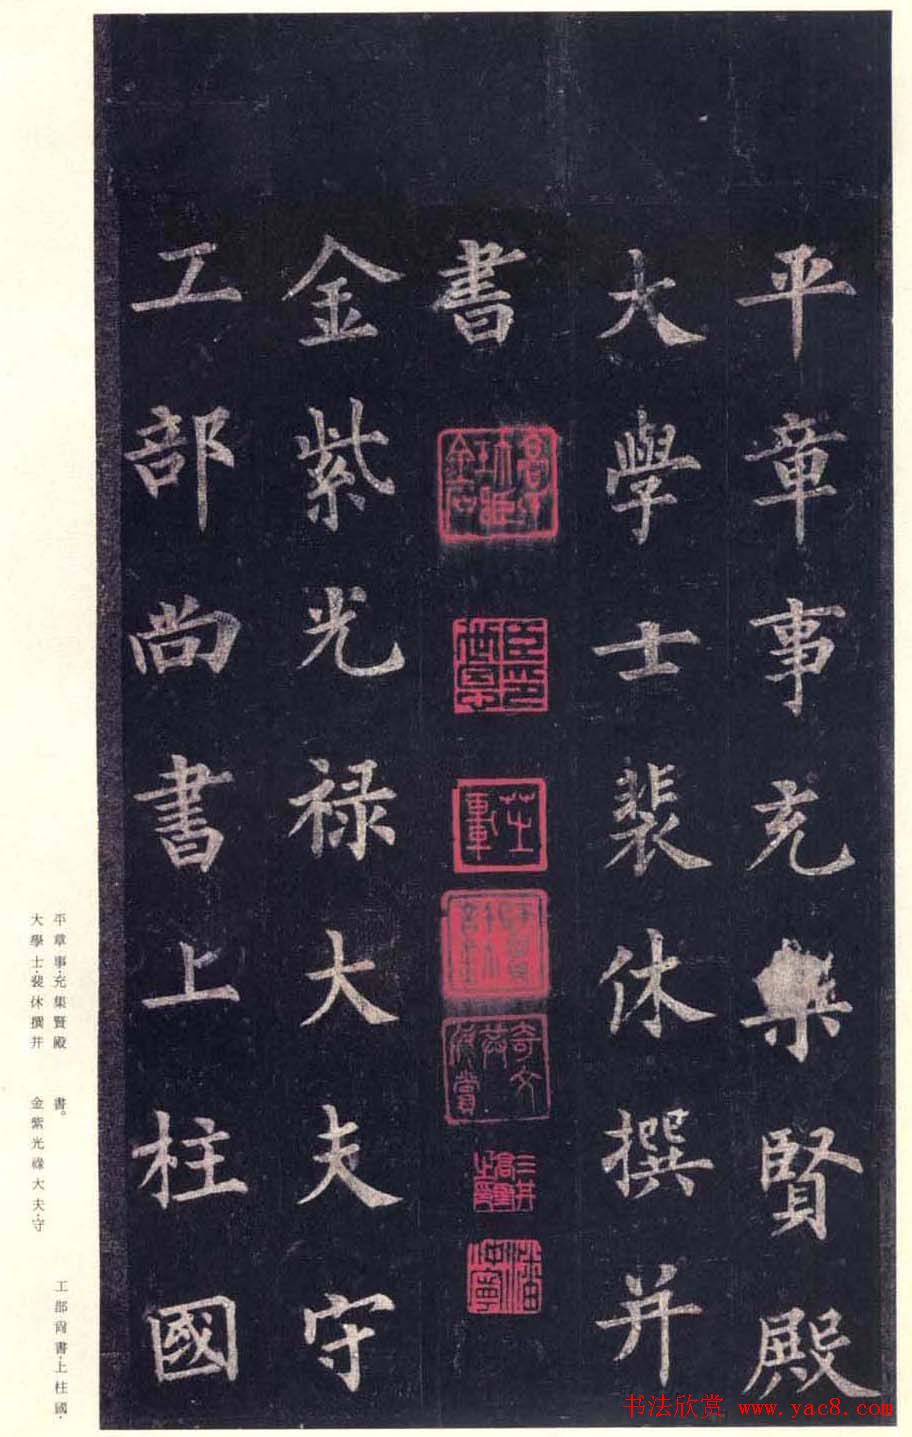 平章事充集賢殿
大學士裴休撰并
書
金紫光祿大夫守
工部尚書上柱國
平章事·充集賢殿
大學士·裴休撰并
書。
金紫光祿大夫·守
工部尚書·上柱國·
书法欣赏 www.yac8.com